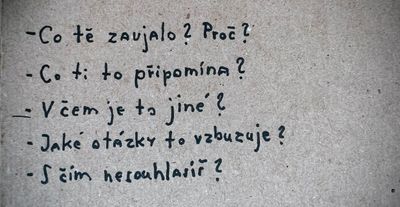 - Co tě zaujalo? Proč?
- Co ti to připomíná?
- V čem je to jiné?
- Jaké otázky to vzbuzuje?
- S čím nesouhlasíš?